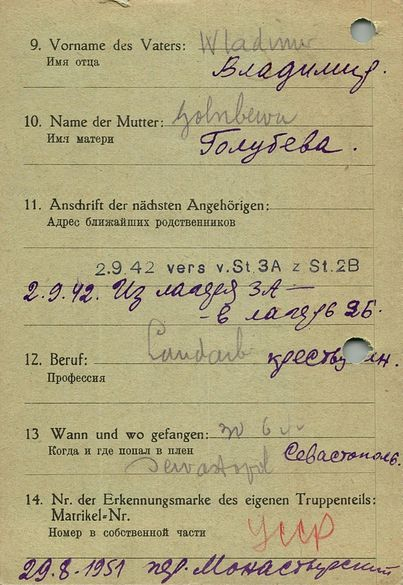 9. Vorname des Vaters: Wladimir
Имя отца
Владимир.
10. Name der Mutter: Golubewa
Имя матери
Голубева.
11. Anschrift der nächsten Angehörigen:
Адрес ближайших родственников
2.9.42 vers v. St. 3A z St. 2B
2.9.42. Из лагеря 3А —
— в лагерь 2Б.
12. Beruf: Landarb
крестьянин.
Профессия
13 Wann und wo gefangen: 30 6
Когда и где попал в плен
Sewastopol Севастополь.
14. Nr. der Erkennungsmarke des eigenen Truppenteils:
Matrikel-Nr.
Номер в собственной части
29.8.1951 пер. Монастырский